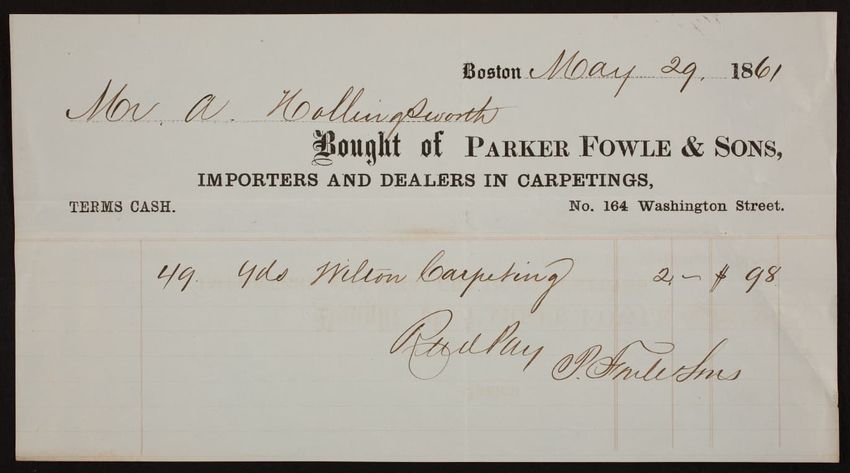 Boston May 29. 1861
Mr. A. Hollingsworth
Bought of PARKER FOWLE & SONS,
IMPORTERS AND DEALERS IN CARPETINGS,
TERMS CASH. No. 164 Washington Street.
49 yds Wilton Carpeting 2.- $ 98
Recd Pay
P. Fowle & Sons